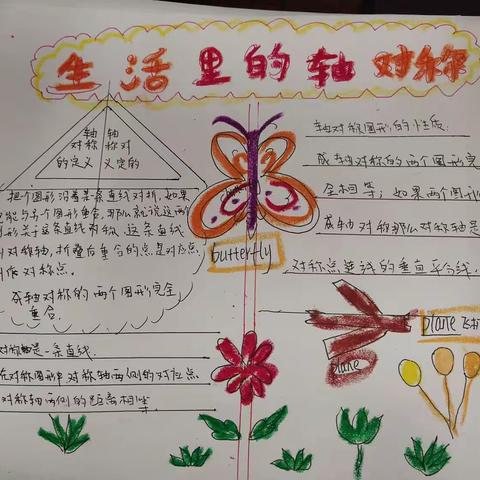 生活里的轴对称
轴 轴
对称 称对
的定义 义定的
把个图形沿着某条直线对折,如果
它能与另个图形重合,那么就说这两
图形关于这条直线对称,这条直线
对称轴,折叠后重合的点是对应点
叫作对称点。
成轴对称的两个图形完全
重合
对称轴是一条直线.
在对称图形中对称轴两侧的对应点
对称轴两侧的距离相等
butterfly
轴对称图形的性质.
成轴对称的两个图形完
全相等;如果两个图形
成轴对称那么对称轴是
对称点连线的垂直平分线.
plane 飞机
plane